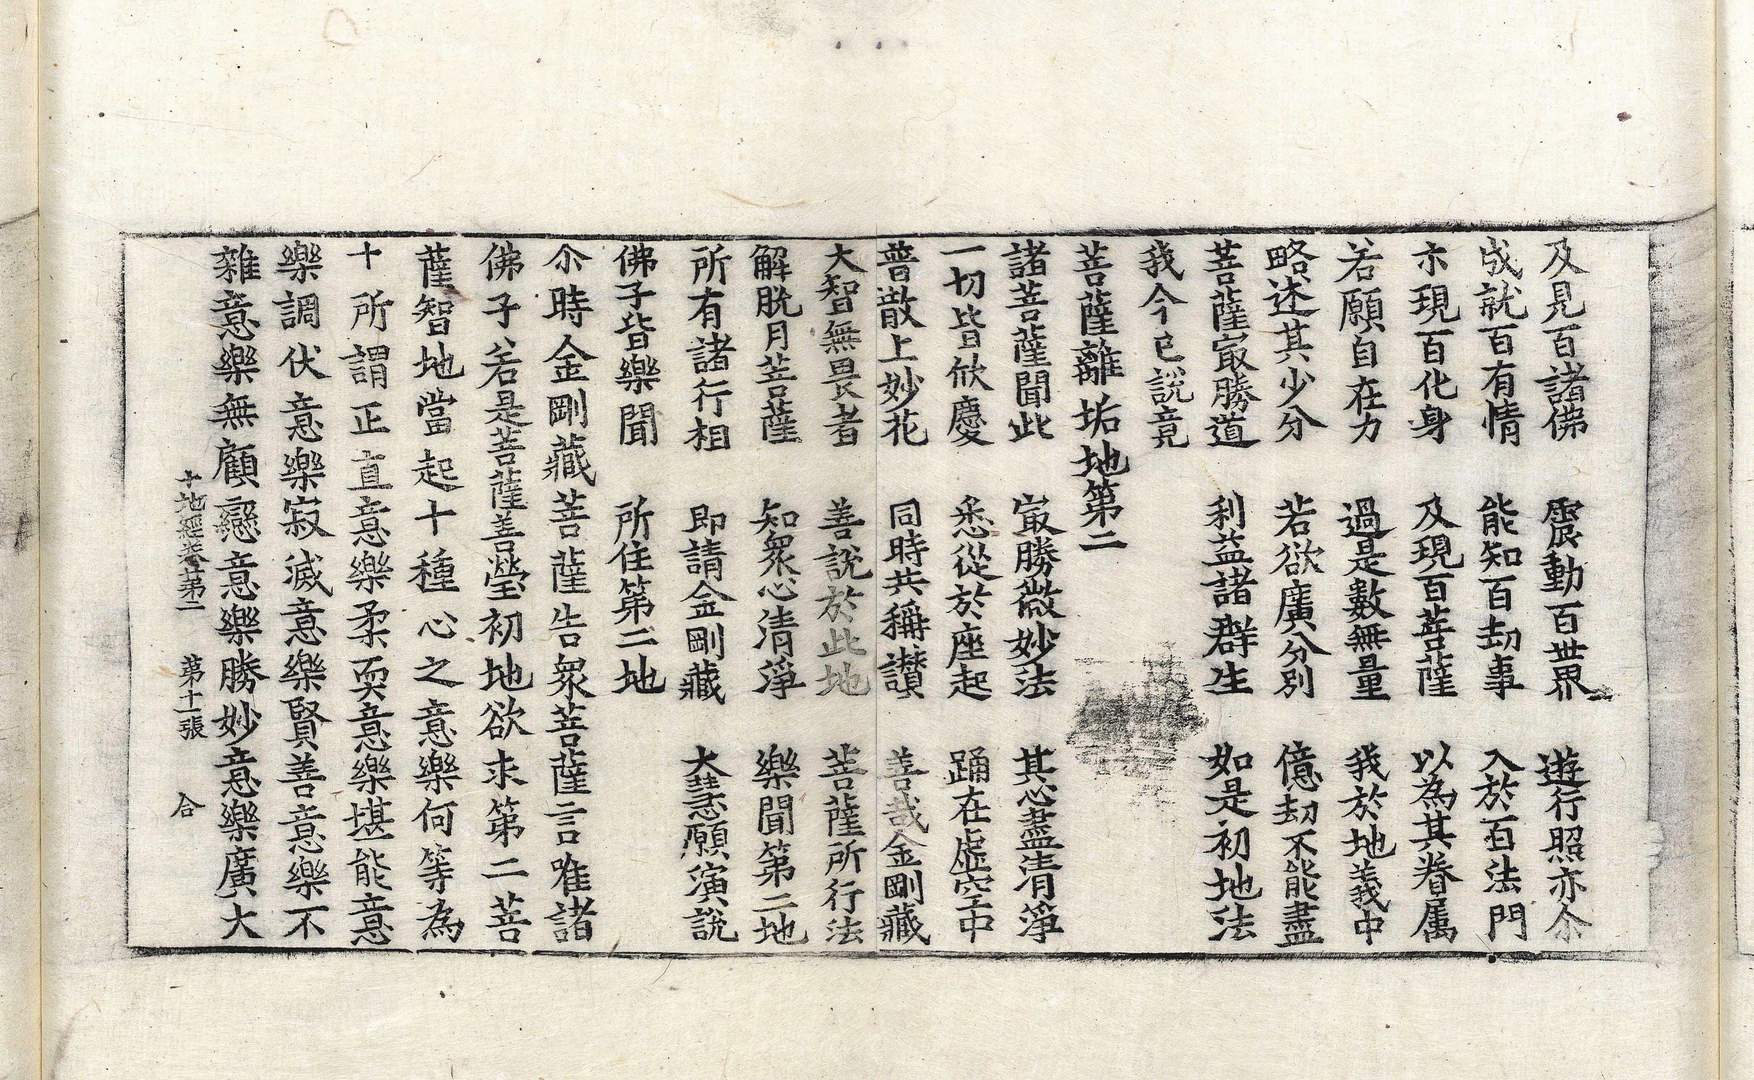 及見百諸佛　震動百世界　遊行照亦尒
成就百有情　能知百劫事　入於百法門
示現百化身　及現百菩薩　以為其眷属
若願自在力　過是數無量　我於地義中
略述其少分　若欲廣分別　億劫不能盡
菩薩㝡勝道　利益諸群生　如是初地法
我今已說竟
菩薩離垢地第二
諸菩薩聞此　㝡勝微妙法　其心盡清淨
一切皆欣慶　悉從於座起　踊在虛空中
普散上妙花　同時共稱讃　善哉金剛藏
大智無畏者　善說於此地　菩薩所行法
解脫月菩薩　知衆心清淨　樂聞第二地
所有諸行相　即請金剛藏　大慧願演說
佛子皆樂聞　所住第二地
尒時金剛藏菩薩告衆菩薩言唯諸
佛子若是菩薩善瑩初地欲求第二菩
薩智地當起十種心之意樂何等為
十所謂正直意樂柔耎意樂堪能意
樂調伏意樂寂滅意樂賢善意樂不
雜意樂無顧戀意樂勝妙意樂廣大
十地經卷第二　第十一張　合